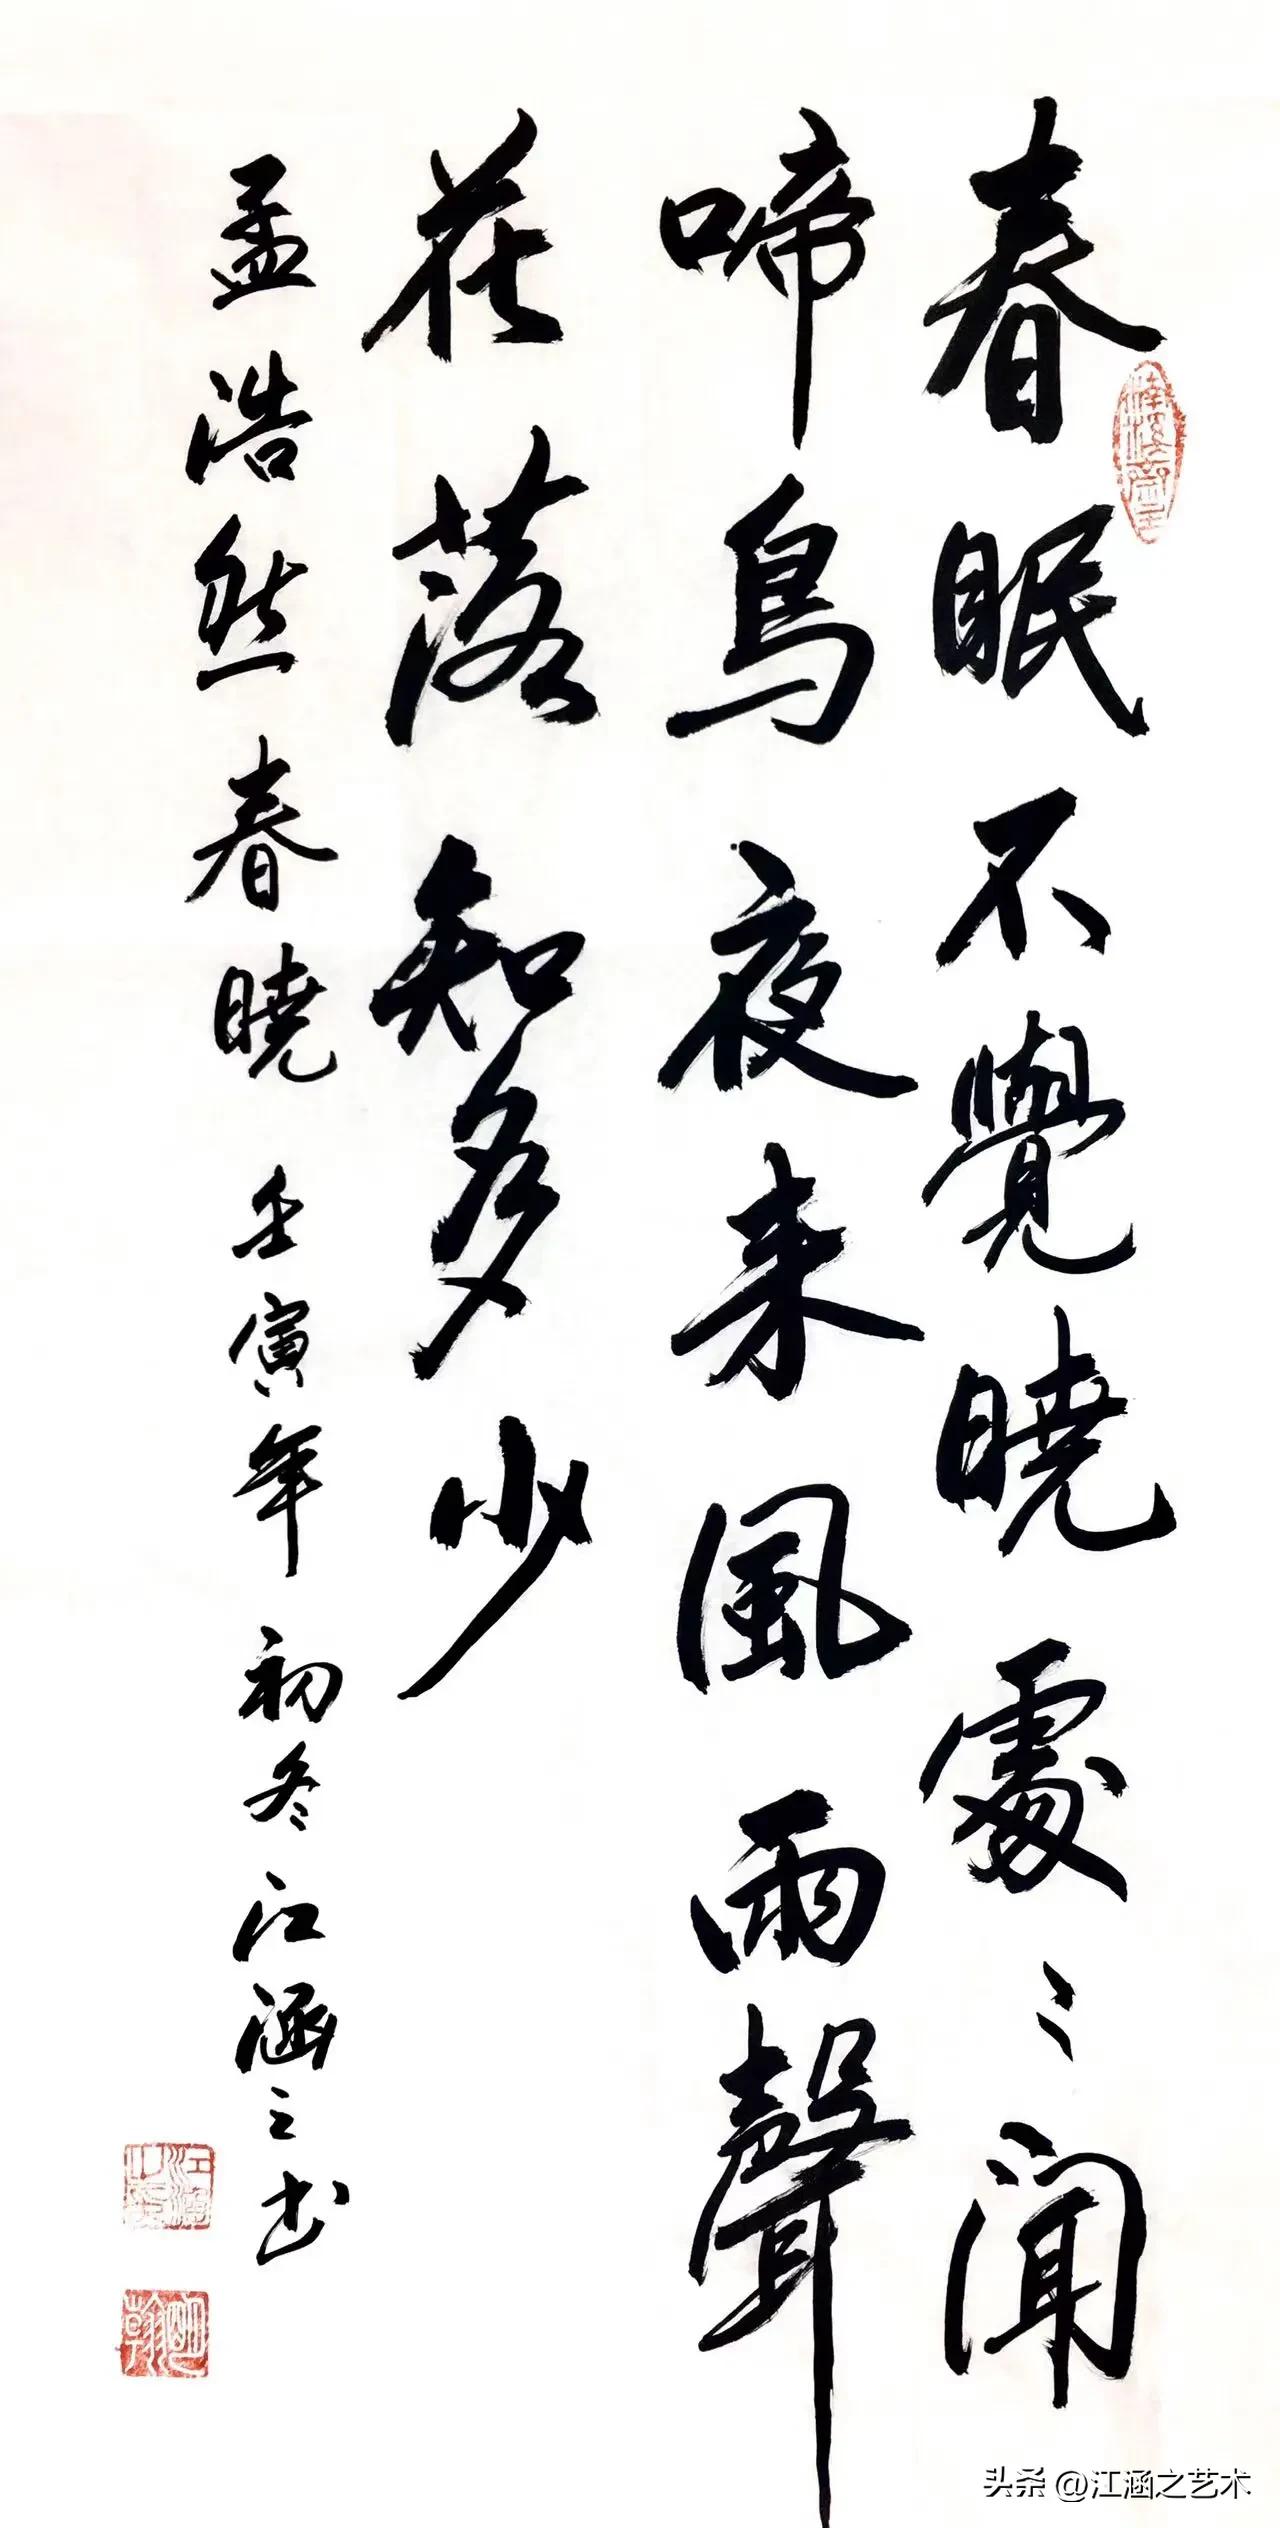 春眠不覺曉處〻聞
啼鳥夜来風雨聲
花落知多少
孟浩然春曉 壬寅年 初冬 江涵之书
江涵之印
头条 @江涵之艺术